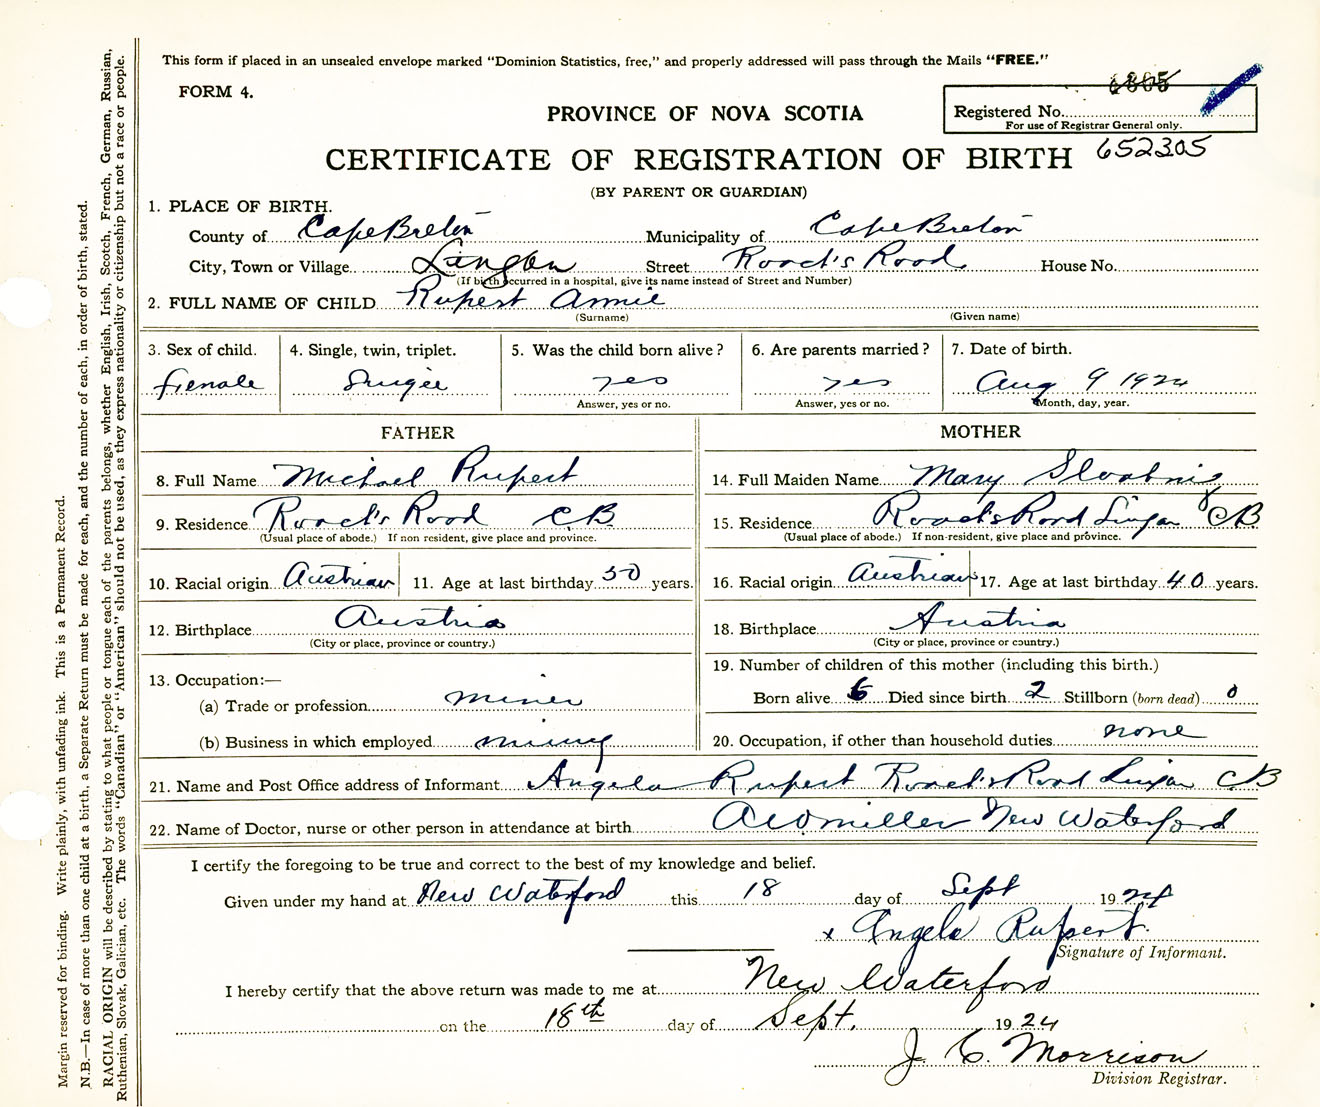 This form if placed in an unsealed envelope marked "Dominion Statistics, free," and properly addressed will pass through the Mails "FREE."
FORM 4.
6805
PROVINCE OF NOVA SCOTIA
Registered No.
For use of Registrar General only.
CERTIFICATE OF REGISTRATION OF BIRTH 652305
(BY PARENT OR GUARDIAN)
1. PLACE OF BIRTH.
County of Cape Breton Municipality of Cape Breton
City, Town or Village Lingan Street Roach's Road House No.
(If birth occurred in a hospital, give its name instead of Street and Number)
2. FULL NAME OF CHILD Rupert Annie
(Surname) (Given name)
3. Sex of child. 4. Single, twin, triplet. 5. Was the child born alive? 6. Are parents married? 7. Date of birth.
female Single yes yes Aug 9 1924
Answer, yes or no. Answer, yes or no. Month, day, year.
FATHER MOTHER
8. Full Name Michael Rupert 14. Full Maiden Name Mary
9. Residence Roach's Road CB 15. Residence Roach's Road Lingan CB
(Usual place of abode.) If non resident, give place and province. (Usual place of abode.) If non-resident, give place and province.
10. Racial origin Austrian 11. Age at last birthday 50 years. 16. Racial origin Austrian 17. Age at last birthday 40 years.
12. Birthplace Austria 18. Birthplace Austria
(City or place, province or country.) (City or place, province or country.)
13. Occupation:— 19. Number of children of this mother (including this birth.)
(a) Trade or profession miner Born alive 6 Died since birth 2 Stillborn (born dead) 0
(b) Business in which employed mining 20. Occupation, if other than household duties none
21. Name and Post Office address of Informant Angela Rupert Roach's Road Lingan CB
22. Name of Doctor, nurse or other person in attendance at birth A W Miller New Waterford
I certify the foregoing to be true and correct to the best of my knowledge and belief.
Given under my hand at New Waterford this 18 day of Sept 1924
x Angela Rupert
Signature of Informant.
I hereby certify that the above return was made to me at New Waterford
on the 18th day of Sept. 1924
J. C. Morrison
Division Registrar.
Margin reserved for binding. Write plainly, with unfading ink. This is a Permanent Record.
N.B.—In case of more than one child at a birth, a Separate Return must be made for each, and the number of each, in order of birth, stated.
RACIAL ORIGIN will be described by stating to what people or tongue each of the parents belongs, whether English, Irish, Scotch, French, German, Russian,
Ruthenian, Slovak, Galician, etc. The words "Canadian" or "American" should not be used, as they express nationality or citizenship but not a race or people.